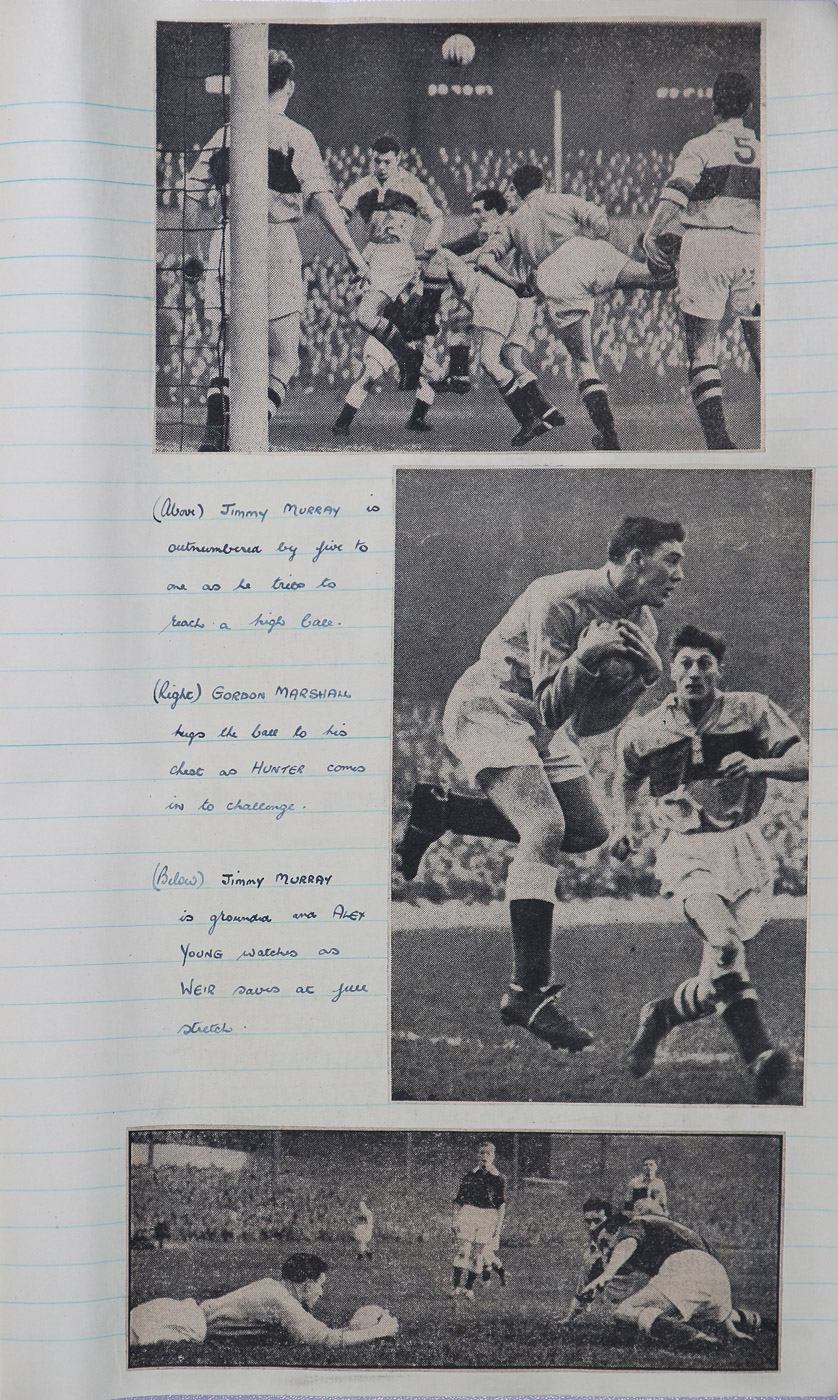 5
(Above) JIMMY MURRAY is
outnumbered by five to
one as he tries to
reach a high ball.
(Right) GORDON MARSHALL
hugs the ball to his
chest as HUNTER comes
in to challenge.
(Below) JIMMY MURRAY
is grounded and ALEX
YOUNG watches as
WEIR saves at full
stretch.